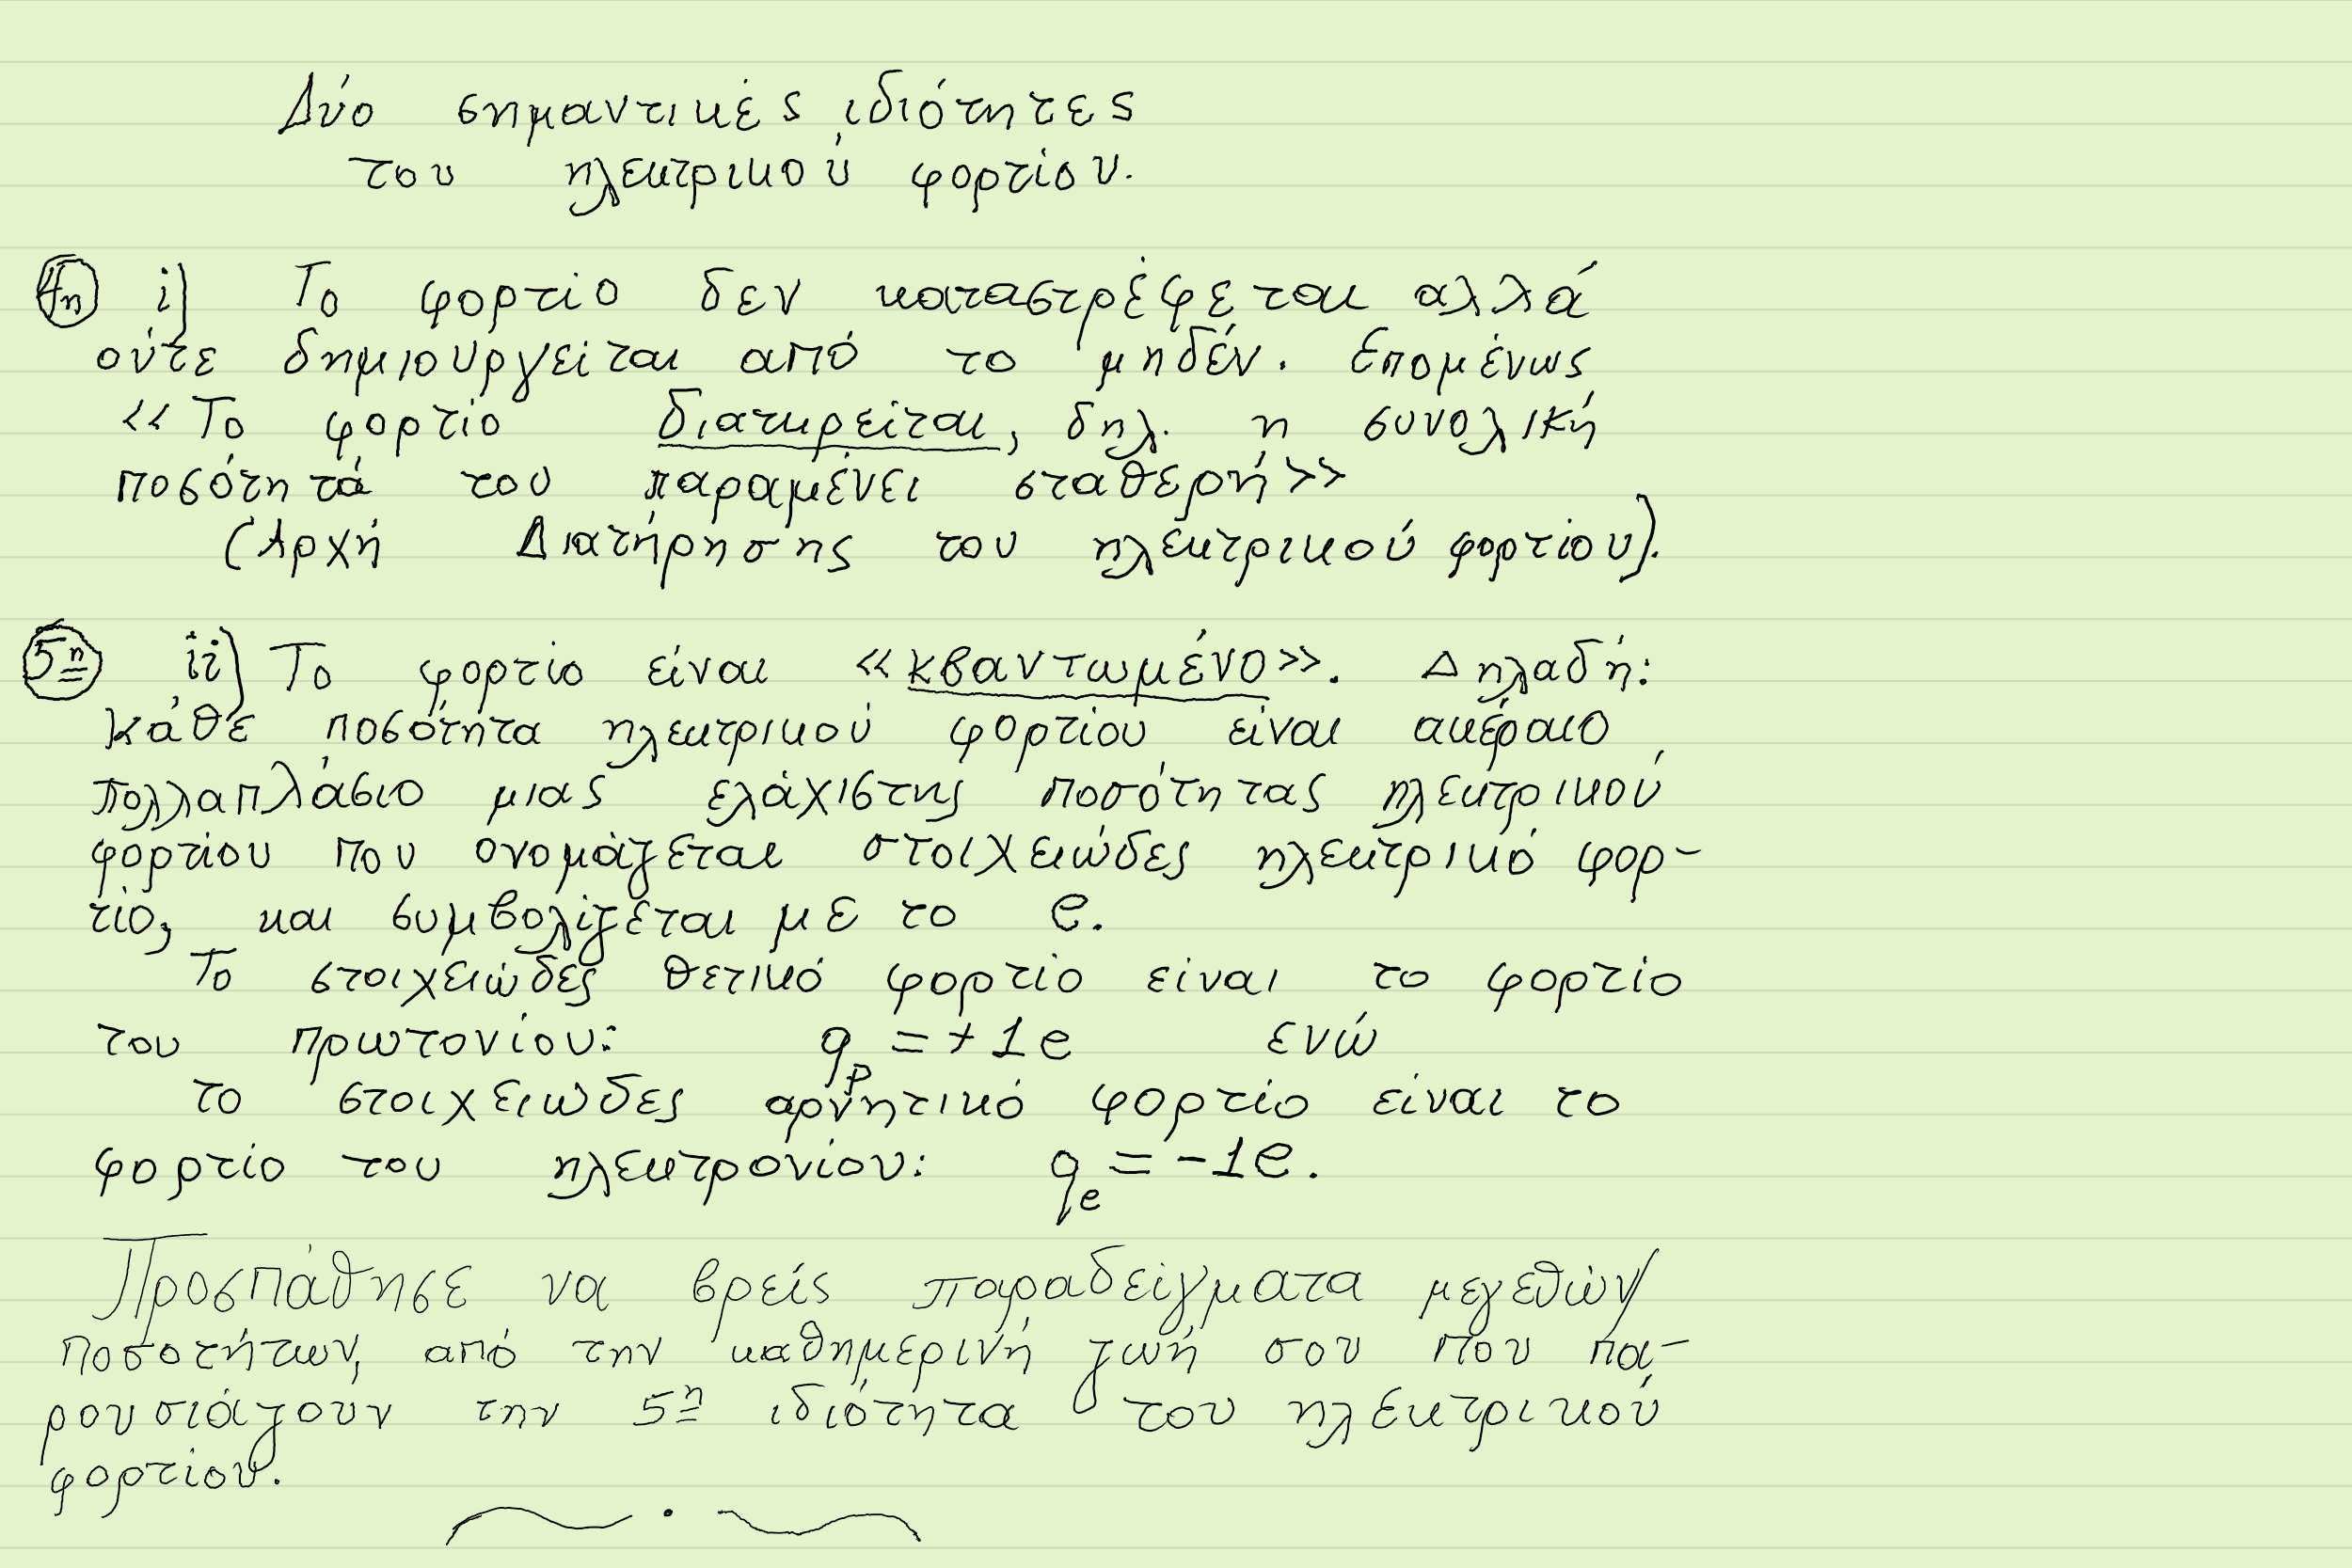 Δύο σημαντικές ιδιότητες
του ηλεκτρικού φορτίου.
4η i) Το φορτίο δεν καταστρέφεται αλλά
ούτε δημιουργείται από το μηδέν. Επομένως
<<Το φορτίο διατηρείται, δηλ. η συνολική
ποσότητά του παραμένει σταθερή>>
(Αρχή Διατήρησης του ηλεκτρικού φορτίου).
5η ii) Το φορτίο είναι <<κβαντωμένο>>. Δηλαδή:
κάθε ποσότητα ηλεκτρικού φορτίου είναι ακέραιο
πολλαπλάσιο μιας ελάχιστης ποσότητας ηλεκτρικού
φορτίου που ονομάζεται στοιχειώδες ηλεκτρικό φορ-
τίο, και συμβολίζεται με το e.
Το στοιχειώδες θετικό φορτίο είναι το φορτίο
του πρωτονίου: qp = +1e ενώ
το στοιχειώδες αρνητικό φορτίο είναι το
φορτίο του ηλεκτρονίου: qe = -1e.
Προσπάθησε να βρείς παραδείγματα μεγεθών/
ποσοτήτων, από την καθημερινή ζωή σου που πα-
ρουσιάζουν την 5η ιδιότητα του ηλεκτρικού
φορτίου.